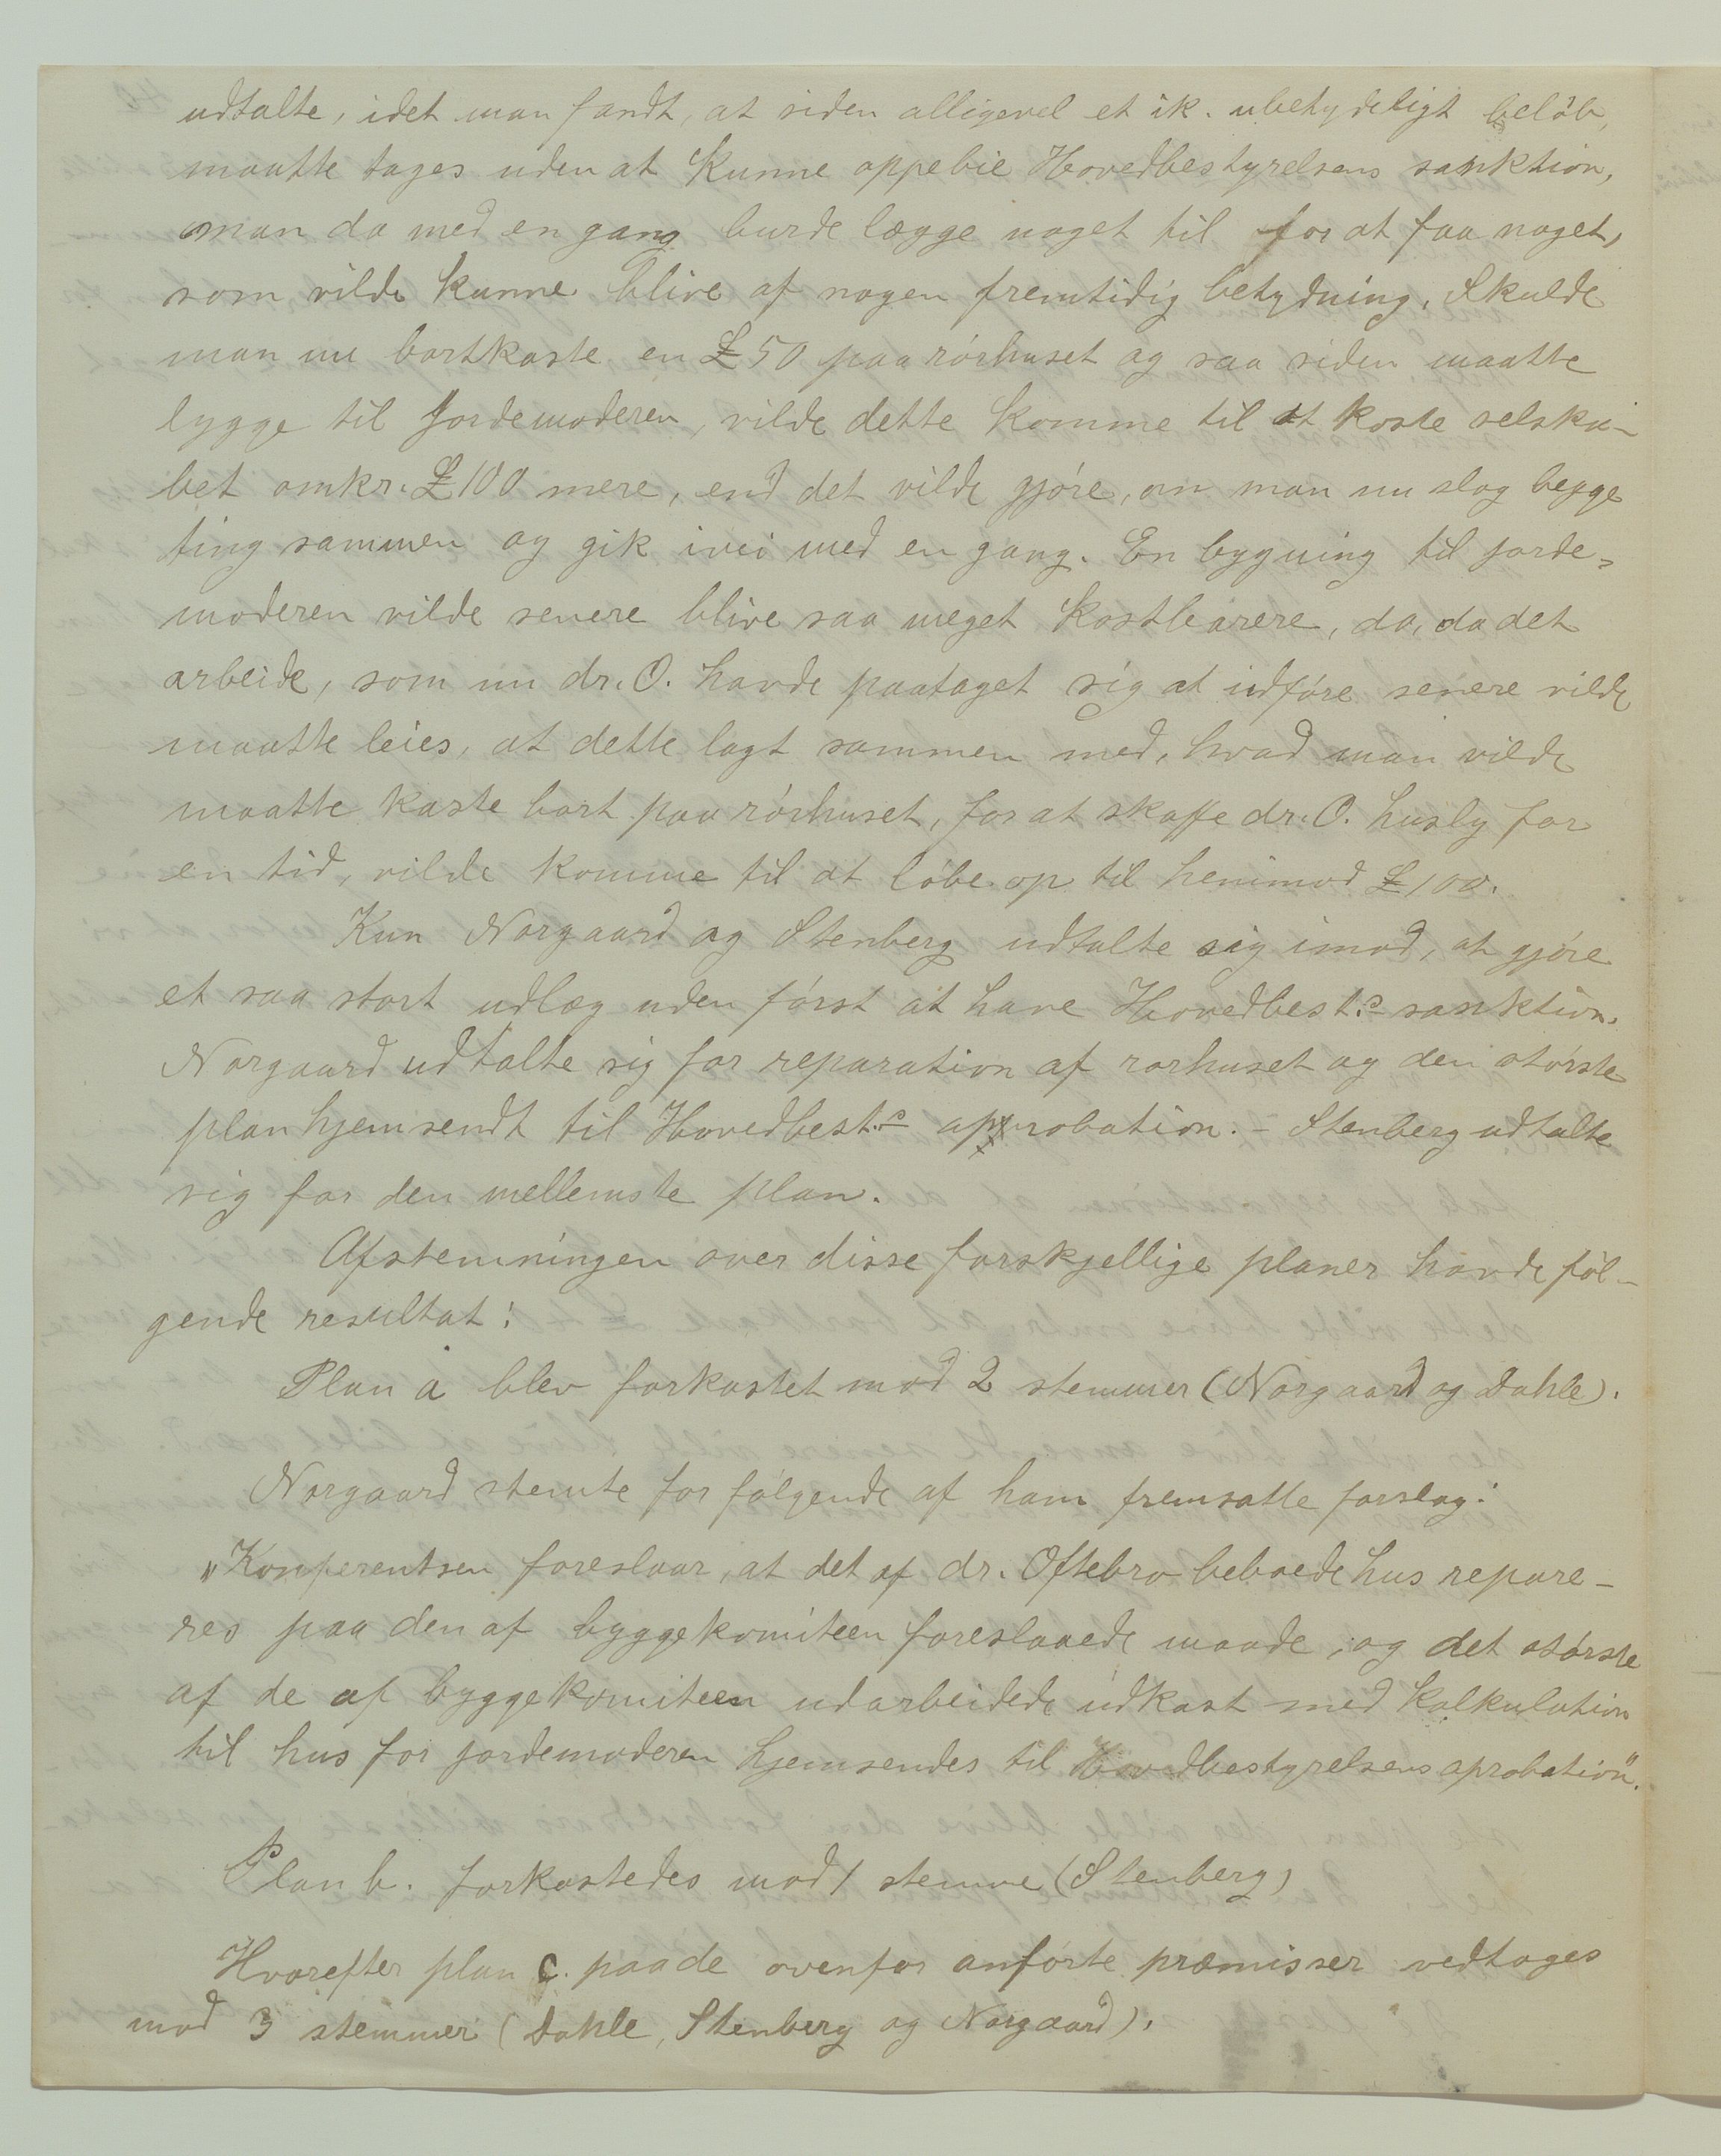 udtalte, idet man fandt, at siden alligevel et ik. ubetydeligt beløb,
maatte tages uden at kunne oppebie Hovedbestyrelsens sanktion,
man da med en gang burde lægge noget til for at faa noget,
som vilde kunne blive af nogen fremtidig betydning. Skulde
man nu bortkaste en £50 paa rörhuset og saa siden maatte
bygge til Jordemoderen, vilde dette komme til at koste selska-
bet omkr. £100 mere, end det vilde gjöre, om man nu slog begge
ting sammen og gik ivei med en gang. En bygning til jorde-
moderen vilde senere blive saa meget kostbarere, da, da det
arbeide, som nu dr. O. havde paataget sig at udföre senere vilde
maatte leies, at dette lagt sammen med, hvad man vilde
maatte kaste bort paa rörhuset, for at skaffe dr. O. husly for
en tid, vilde komme til at löbe op til henimod £100.
Kun Norgaard og Stenberg udtalte sig imod, at gjöre
et saa stort udlæg uden först at have Hovedbest.s sanktion.
Norgaard udtalte sig for reparation af rorhuset og den störste
plan hjemsendt til Hovedbest.s aprobation. - Stenberg udtalte
sig for den mellemste plan.
Afstemningen over disse forskjellige planer havde föl-
gende resultat:
Plan a blev forkastet mod 2 stemmer (Norgaard og Dahle).
Norgaard stemte for fölgende af ham fremsatte forslag:
"Konferentsen foreslaar, at det af dr. Oftebro beboede hus repare-
res paa den af byggekomiteen foreslaaede maade, og det störste
af de af byggekomiteen udarbeidede udkast med kalkulation
til hus for jordemoderen hjemsendes til Hovedbestyrelsens aprobation".
Plan b. forkastedes mod 1 stemme (Stenberg)
Hvorefter plan c. paa de ovenfor anförte præmisser vedtoges
mod 3 stemmer (Dahle, Stenberg og Norgaard).